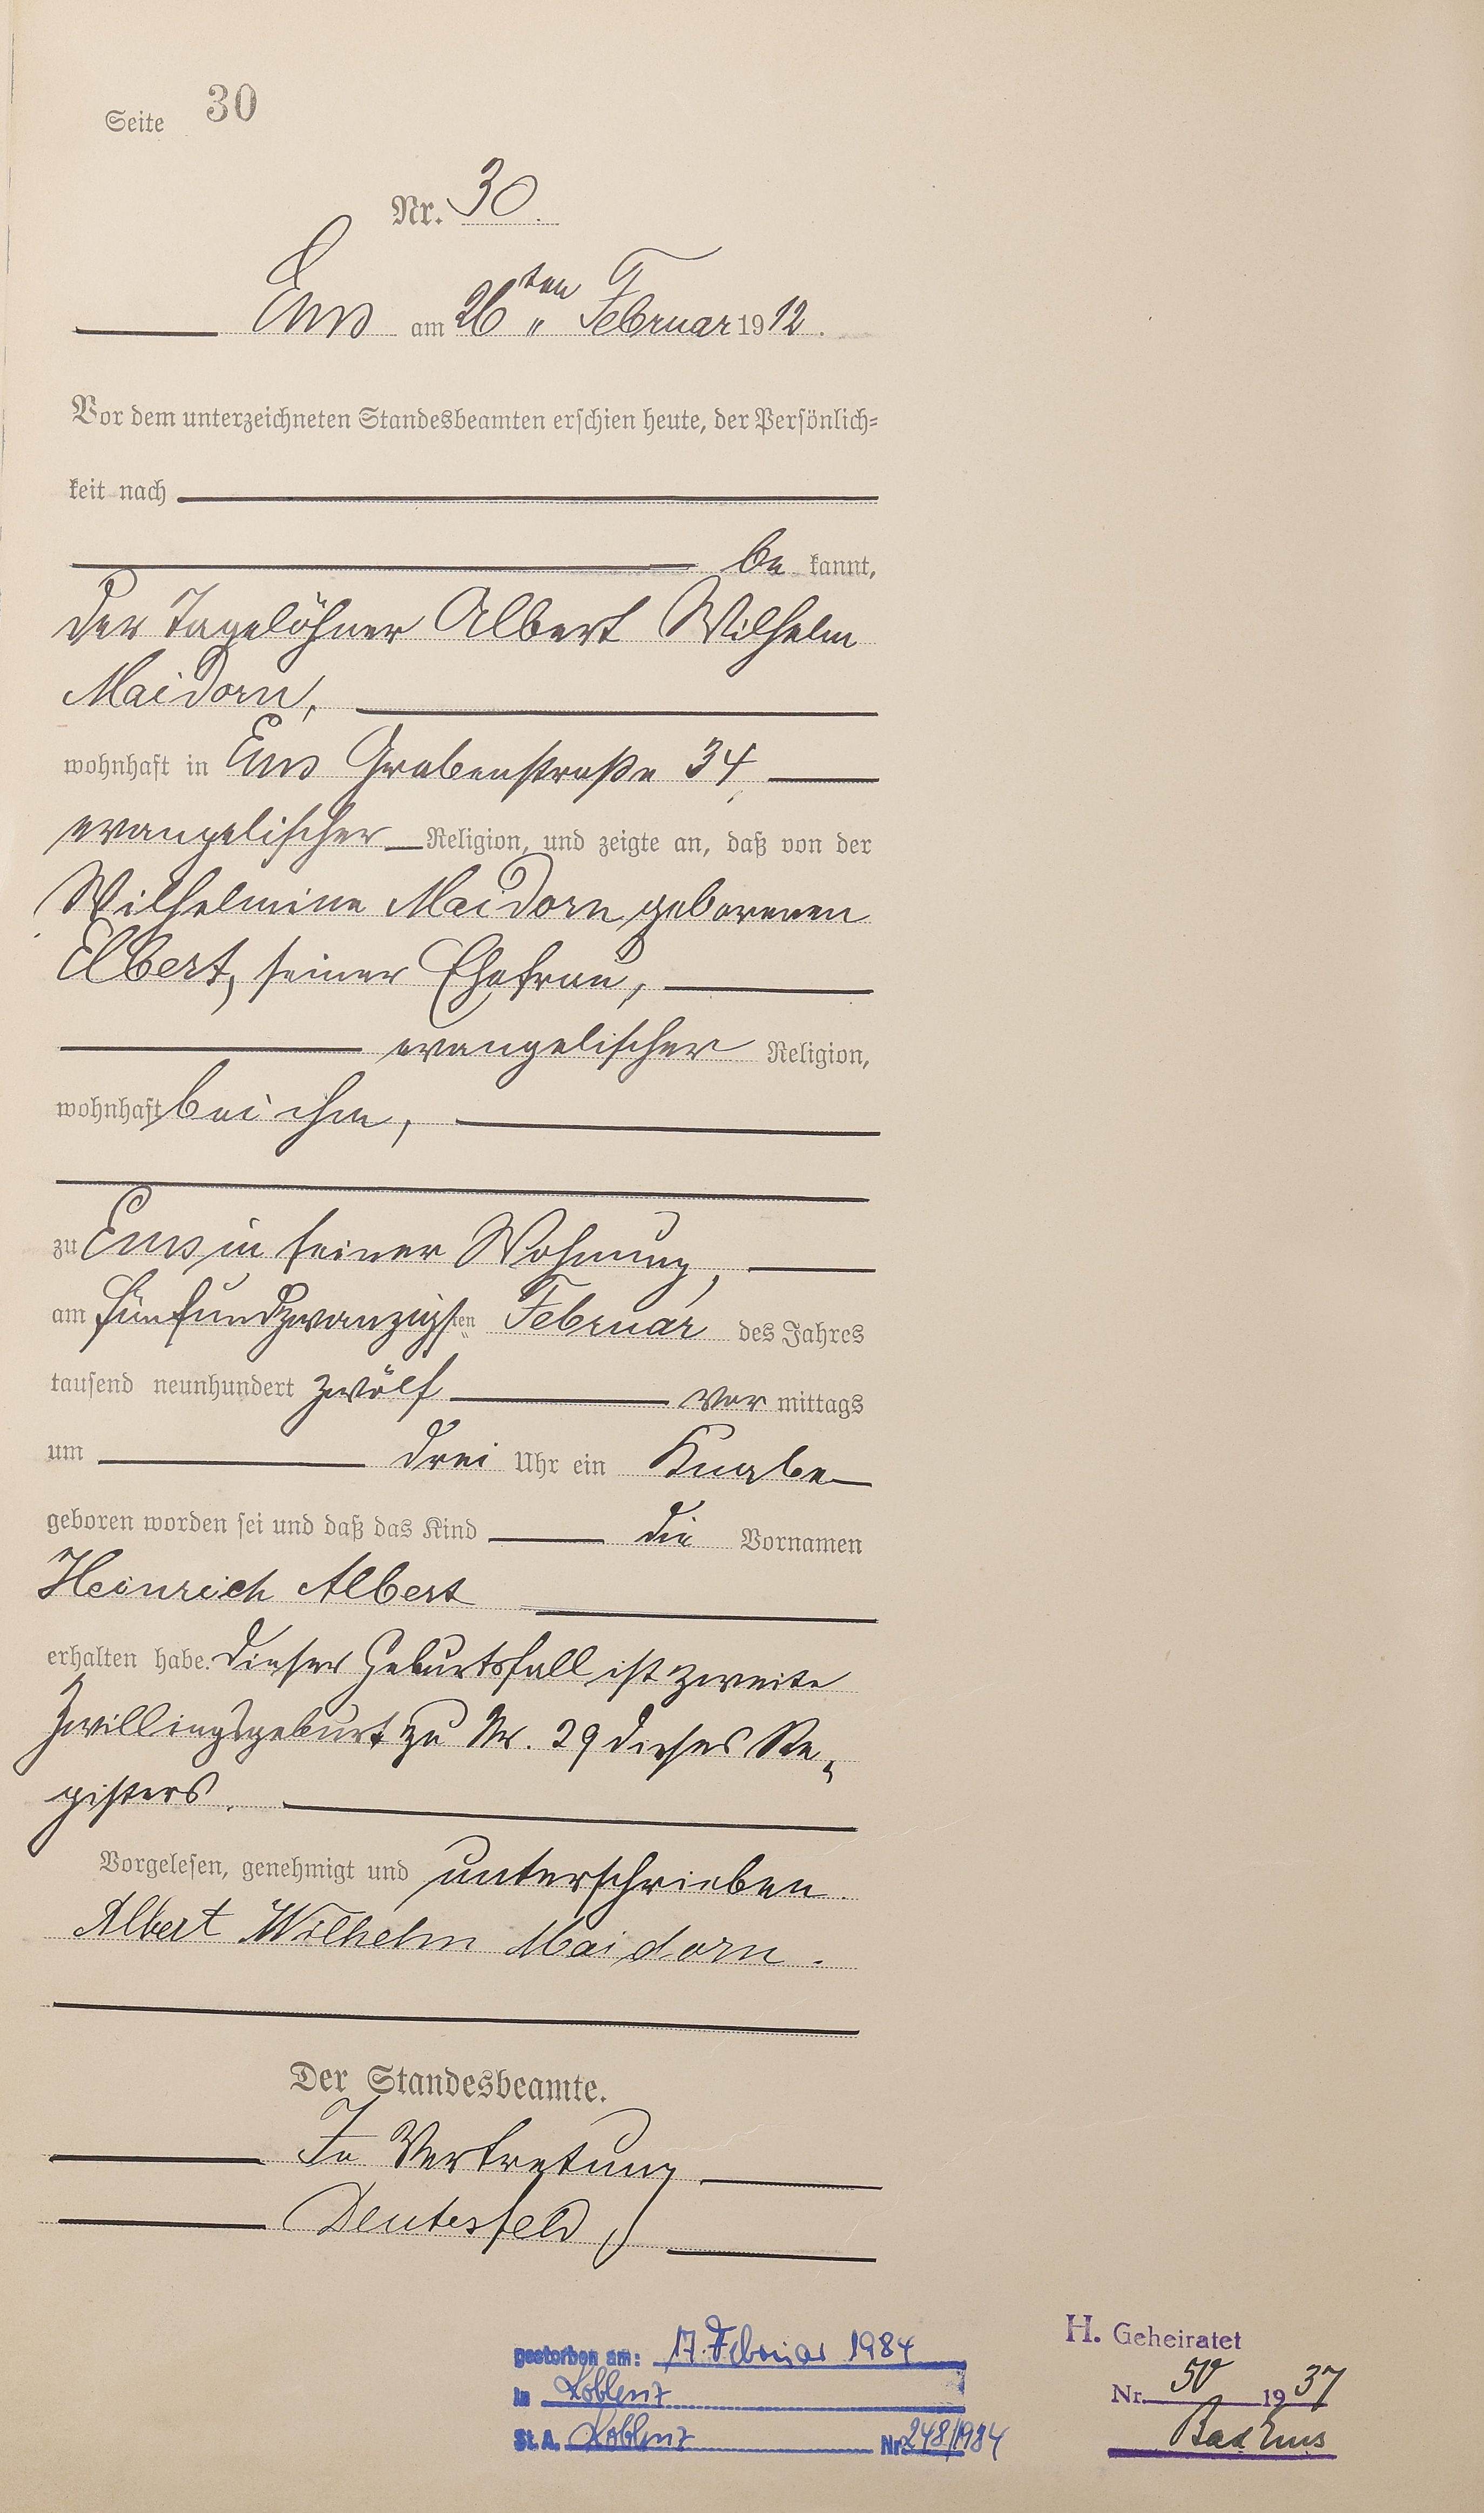 Seite 30
Nr. 30.
Ems am 26ten Februar 1912.
Vor dem unterzeichneten Standesbeamten erschien heute, der Persönlich=
keit nach
be kannt,
der Tagelöhner Albert Wilhelm
Maidorn,
wohnhaft in Ems Grabenstraße 34,
evangelischer Religion, und zeigte an, daß von der
Wilhelmine Maidorn geborenen
Elbert, seiner Ehefrau,
evangelischer Religion,
wohnhaft bei ihm,
zu Ems in seiner Wohnung,
am fünfundzwanzigsten Februar des Jahres
tausend neunhundert zwölf vor mittags
um drei Uhr ein Knabe
geboren worden sei und daß das Kind die Vornamen
Heinrich Albert
erhalten habe. Dieser Geburtsfall ist zweite
Zwillingsgeburt zu Nr. 29 dieses Re=
gisters.
Vorgelesen, genehmigt und unterschrieben.
Albert Wilhelm Maidorn.
Der Standesbeamte.
In Vertretung
Deutesfeld
gestorben am: 17. Februar 1984
in Koblenz
St. A. Koblenz Nr. 248/1984
H. Geheiratet
Nr. 50 1937
Bad Ems